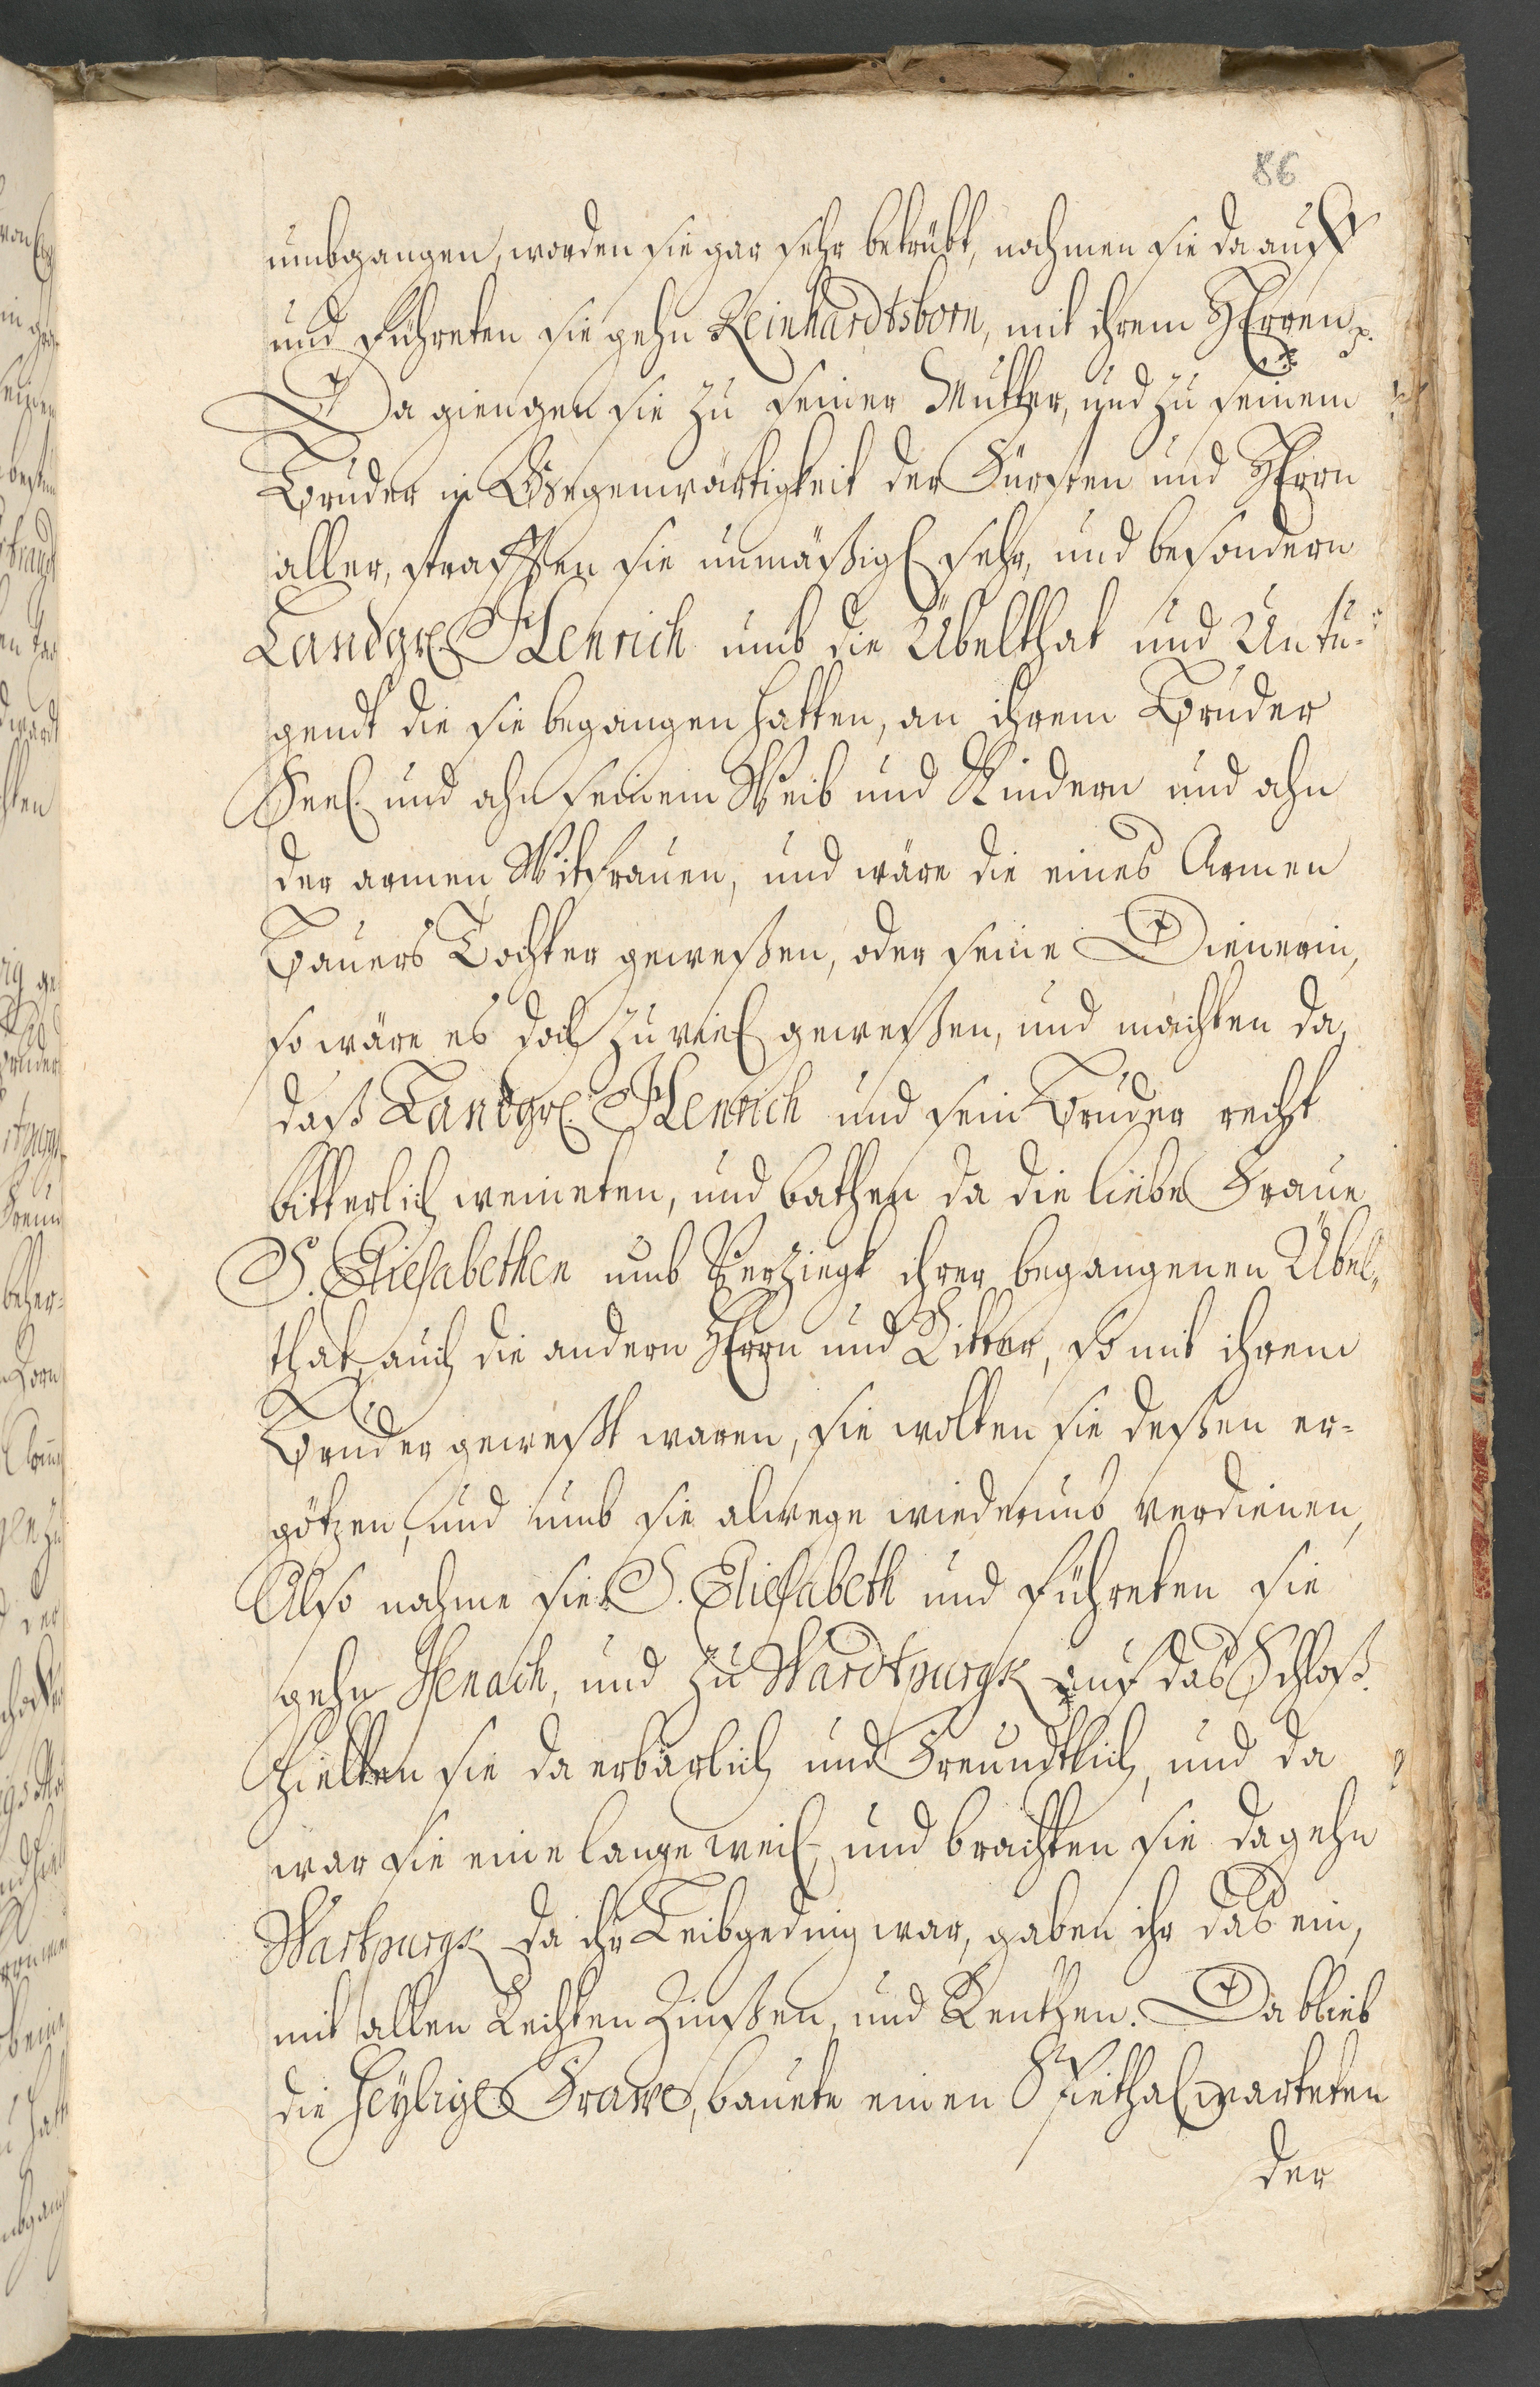 86
umbgangen, worden sie gar sehr betrübt, nahmen sie da auff
und führeten sie gehn Reinhardtsborn, mit ihrem Herren
Da giengen sie zu seiner Mutter, und zu seinem
Bruder in Gegenwärtigkeit der Fürsten und Herrn
aller, strafften sie unmäßig sehr, und besondern
Landgr. Henrich umb die Übelthat und Untu-
gendt die sie begangen hatten, an ihrem Bruder
Seel. und ahn seinem Weib und Kindern und ahn
der armen Witfrauen, und wäre die eines Armen
Bauers Tochter geweßen, oder seine Dienerin,
so wäre es doch zu viel geweßen, und machten da,
daß Landgr. Henrich und sein Bruder recht
bitterlich weineten, und bathen da die liebe Fraue
S. Eliesabethen umb Verziegt ihrer begangenen Übel-
that, auch die andern Herrn und Ritter, so mit ihrem
Bruder geweßt waren, sie wolten sie deßen er-
götzen, und umb sie alwege wiederumb verdienen,
Also nahme sie S. Eliesabeth und führeten sie
gehn Isenach, und zu Wardtpurgk auf das Schloß.
Hielten sie da erbärlich und Freundtlich, und da
war sie eine lange weil, und brachten sie da gehn
Wartpurgk da ihr Leibgeding war, gaben ihr das ein,
mit allen Rechten Zinßen, und Renthen. Da blieb
die heylige Frawe, bauete einen Spiethal, warteten
der